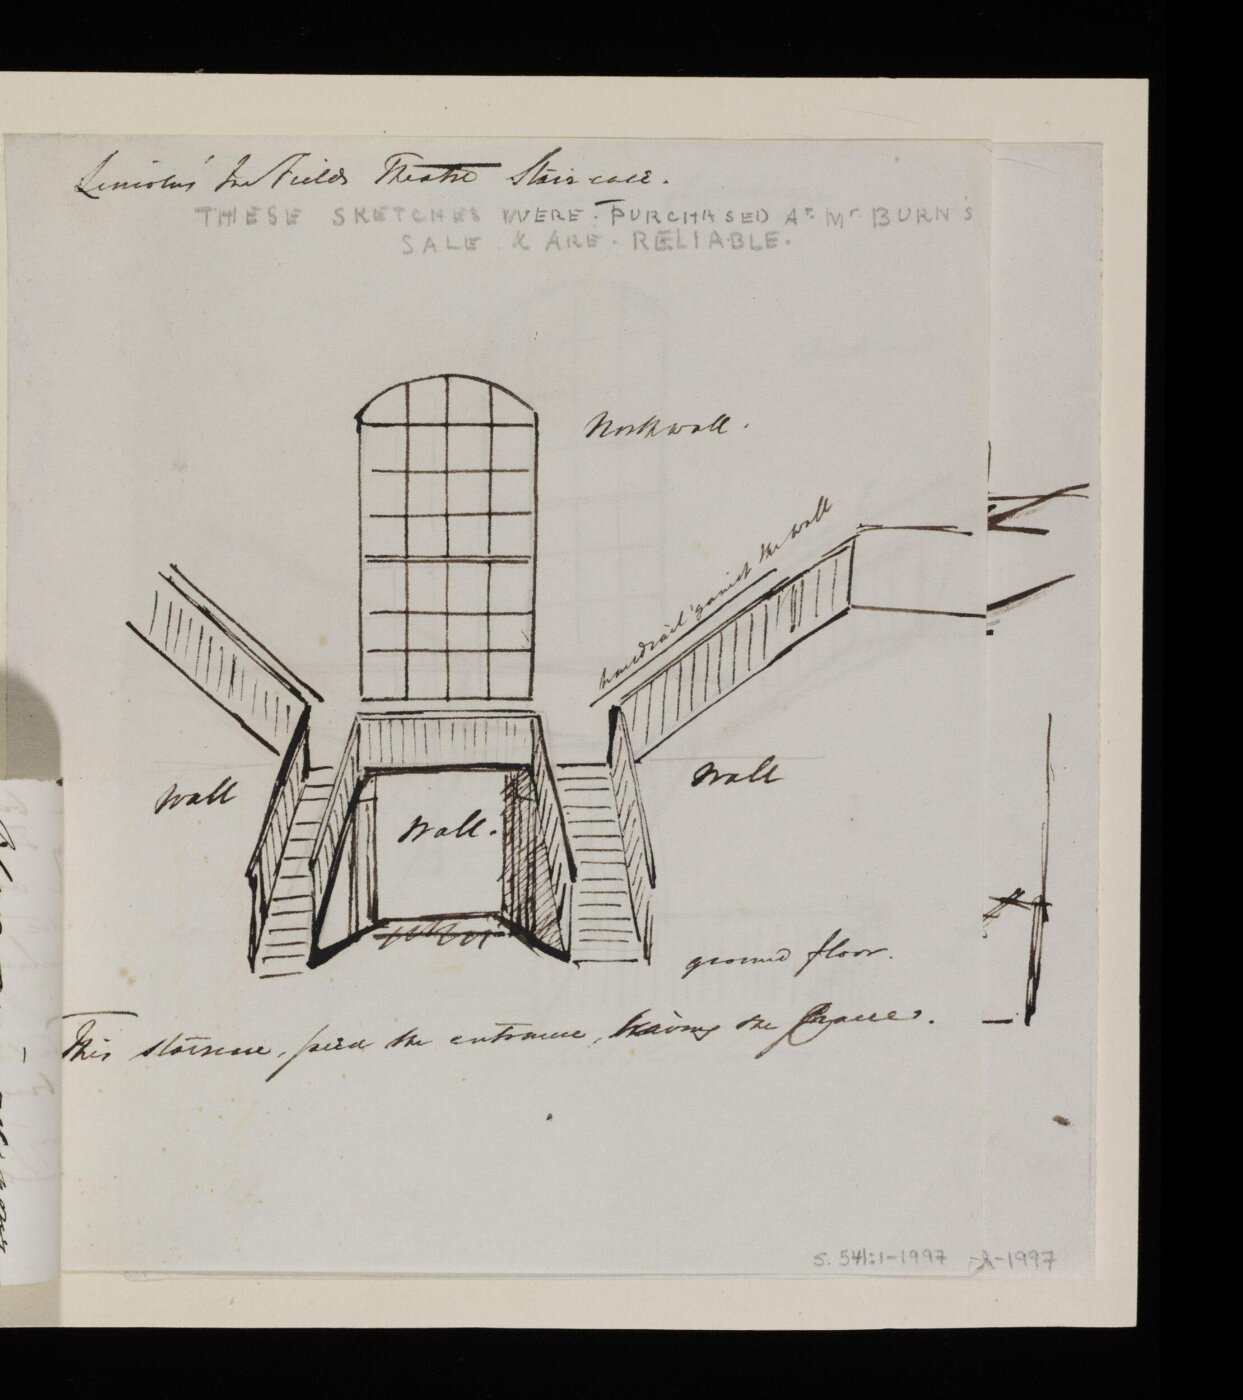 Lincolns' Inn Fields Theatre Staircase.
THESE SKETCHES WERE PURCHASED AT Mr BURN'S
SALE & ARE RELIABLE.
North wall.
handrail 'gainst the wall
Wall
Wall
Wall.
ground floor.
This staircase, faced the entrance, having the
S. 541:1-1997
2-1997